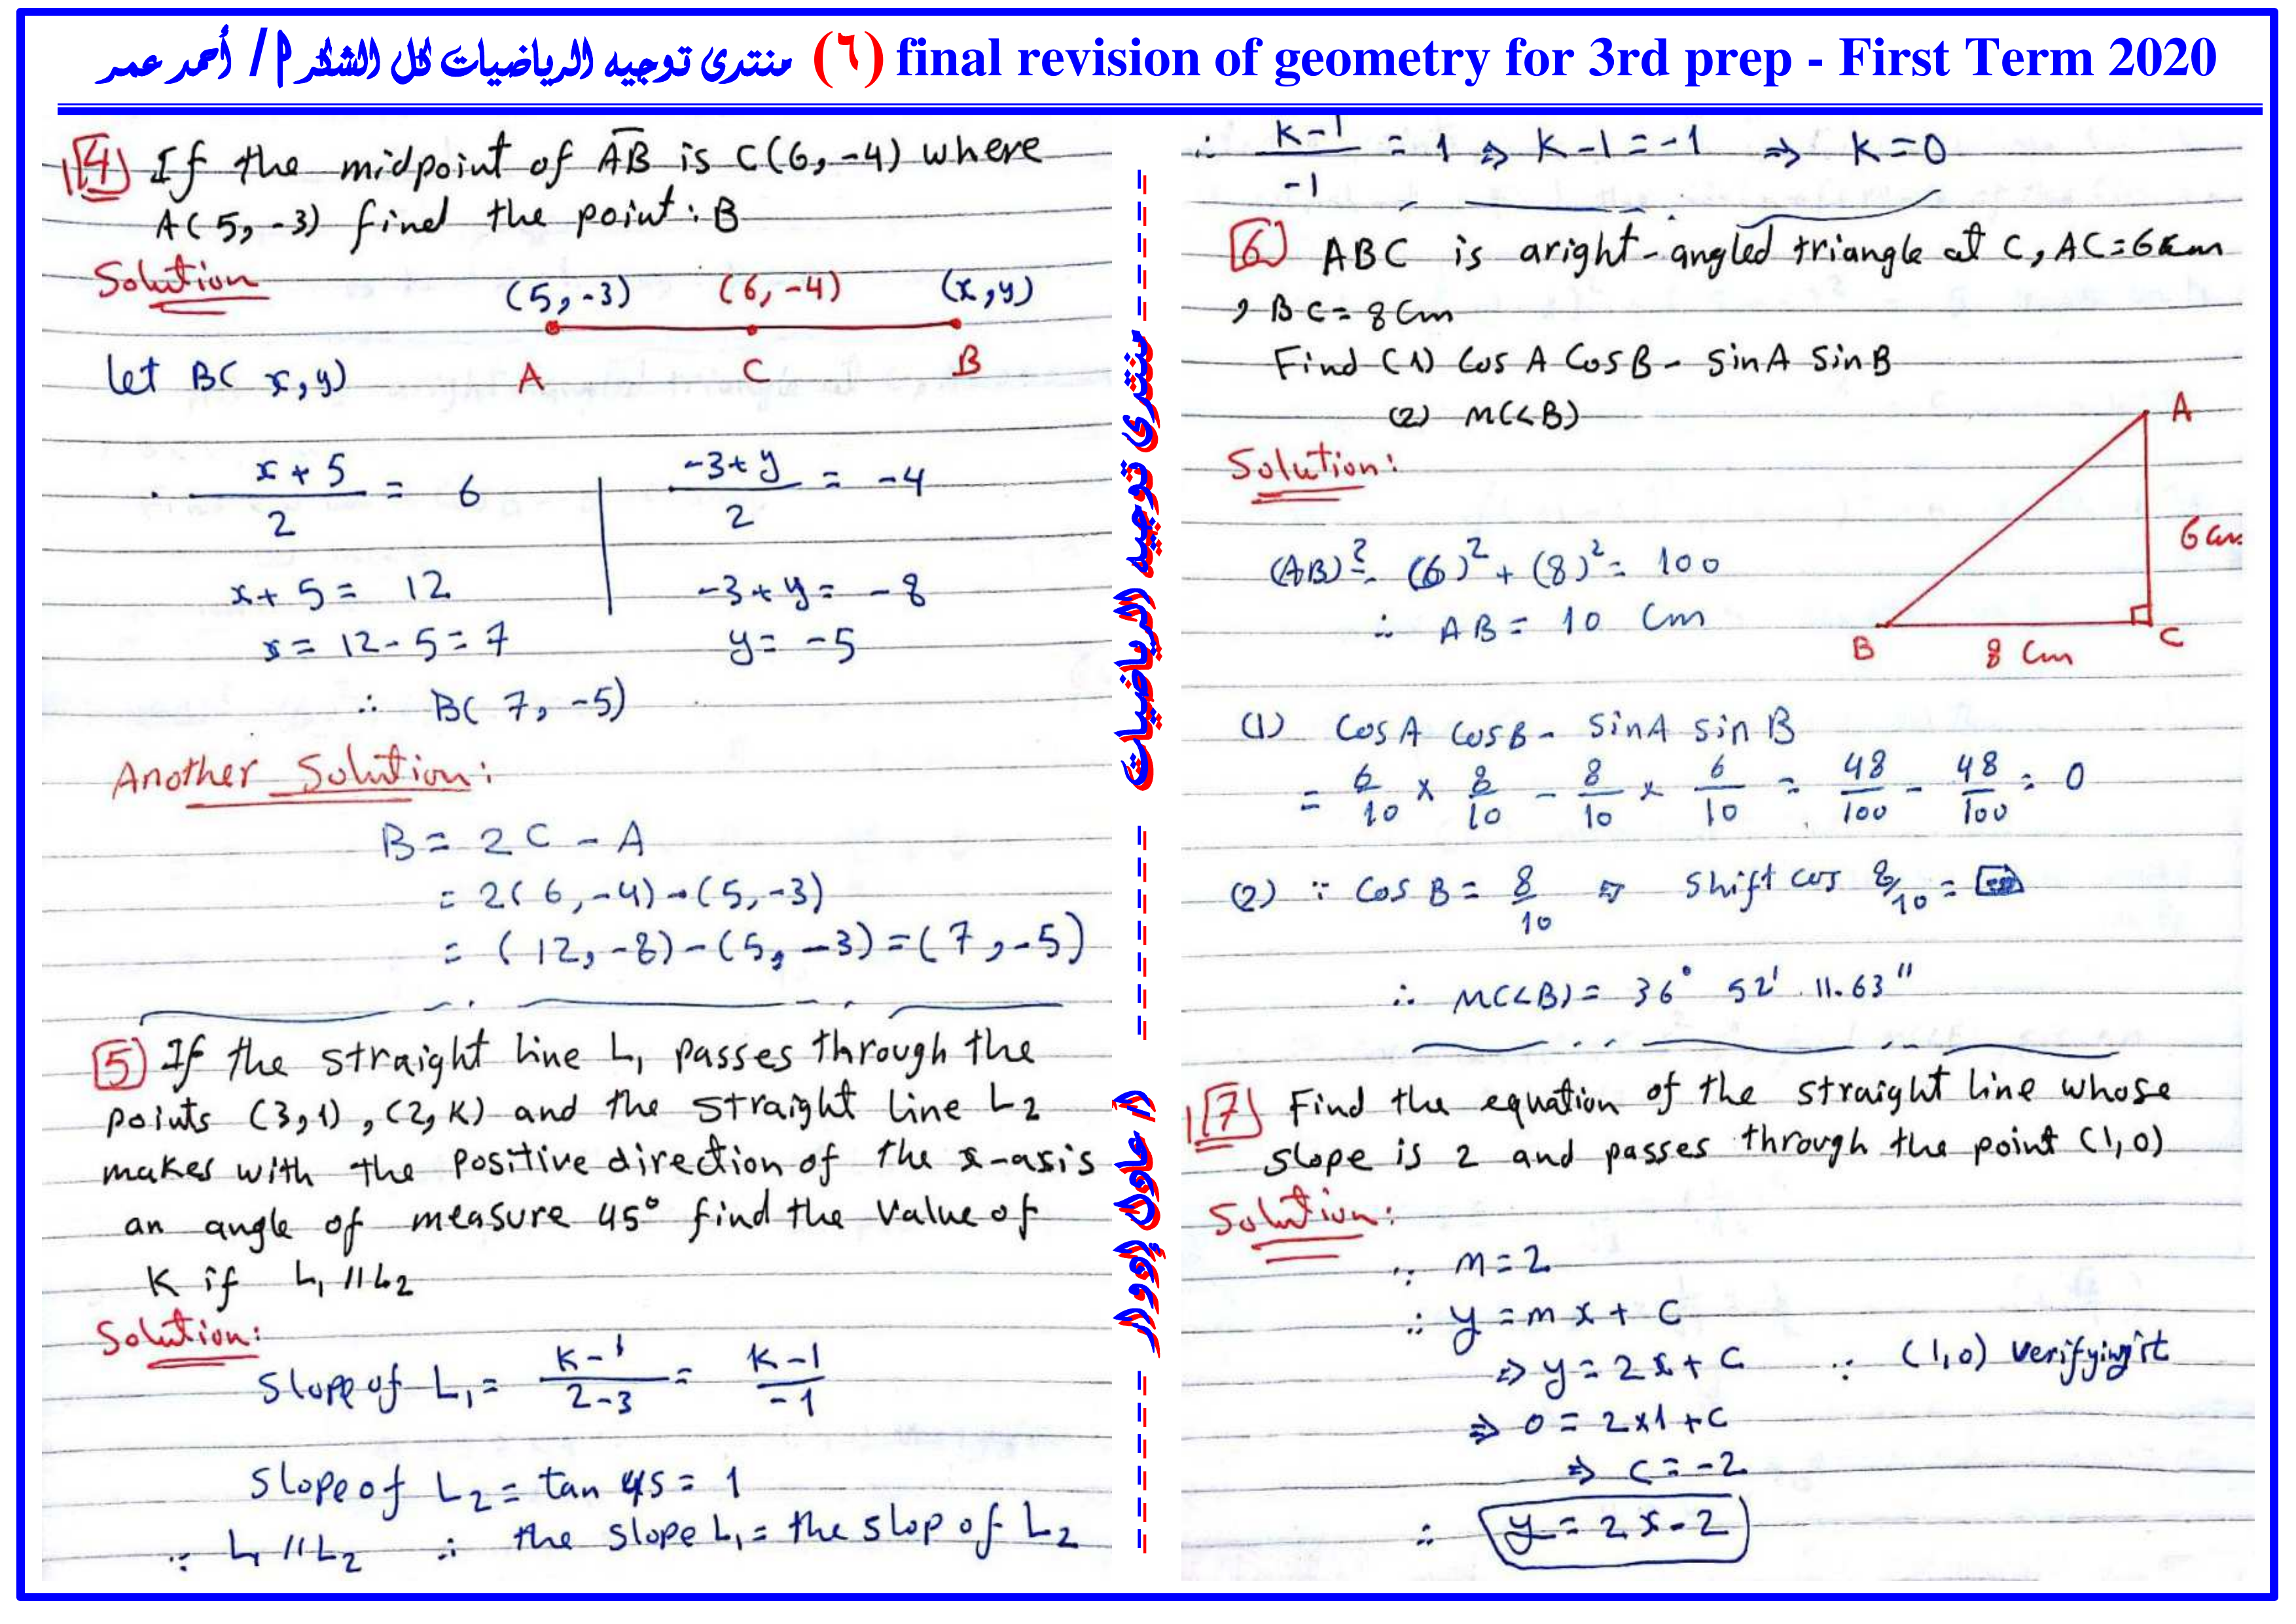 منتدى توجيه الرياضيات لكل الشكر أ / أحمد عمر (٦) final revision of geometry for 3rd prep - First Term 2020
[4] If the midpoint of AB is C(6,-4) where
A(5,-3) find the point: B
Solution
(5,-3) (6,-4) (x,y)
let B( x,y) A C B
x+5/2 = 6 | -3+y/2 = -4
x+5= 12 -3+y= -8
x= 12-5=7 y= -5
∴ B( 7, -5)
Another Solution:
B = 2C - A
= 2(6,-4)-(5,-3)
= (12,-8)-(5,-3)=(7,-5)
[5] If the straight line L₁ passes through the
points (3,1), (2,K) and the straight line L2
makes with the positive direction of the x-axis
an angle of measure 45° find the value of
K if L₁ // L2
Solution:
Slope of L₁ = K-1/2-3 = K-1/-1
Slope of L2 = tan 45 = 1
∵ L₁ // L2 ∴ the slope L₁ = the slop of L2
منتدى توجيه الرياضيات
أ / عادل إدوار
∴ K-1/-1 = 1 ⇒ K-1=-1 ⇒ K=0
[6] ABC is aright-angled triangle at C, AC=6cm
, BC= 8Cm
Find (1) Cos A Cos B - Sin A Sin B
(2) M(<B)
Solution:
A
6cm
B 8 Cm C
(AB)²= (6)²+(8)²= 100
∴ AB= 10 Cm
(1) Cos A Cos B - Sin A Sin B
= 6/10 × 8/10 - 8/10 × 6/10 = 48/100 - 48/100 = 0
(2) ∵ Cos B = 8/10 ⇒ Shift cos 8/10 =
∴ M(<B)= 36° 52' 11.63"
[7] Find the equation of the straight line whose
slope is 2 and passes through the point (1,0)
Solution:
∵ m=2
∴ y = mx + C
⇒ y = 2x + C ∵ (1,0) verifying it
⇒ 0 = 2×1 +C
⇒ C=-2
∴ y = 2x-2